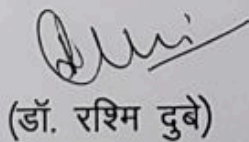 (डॉ. रश्मि दुबे)